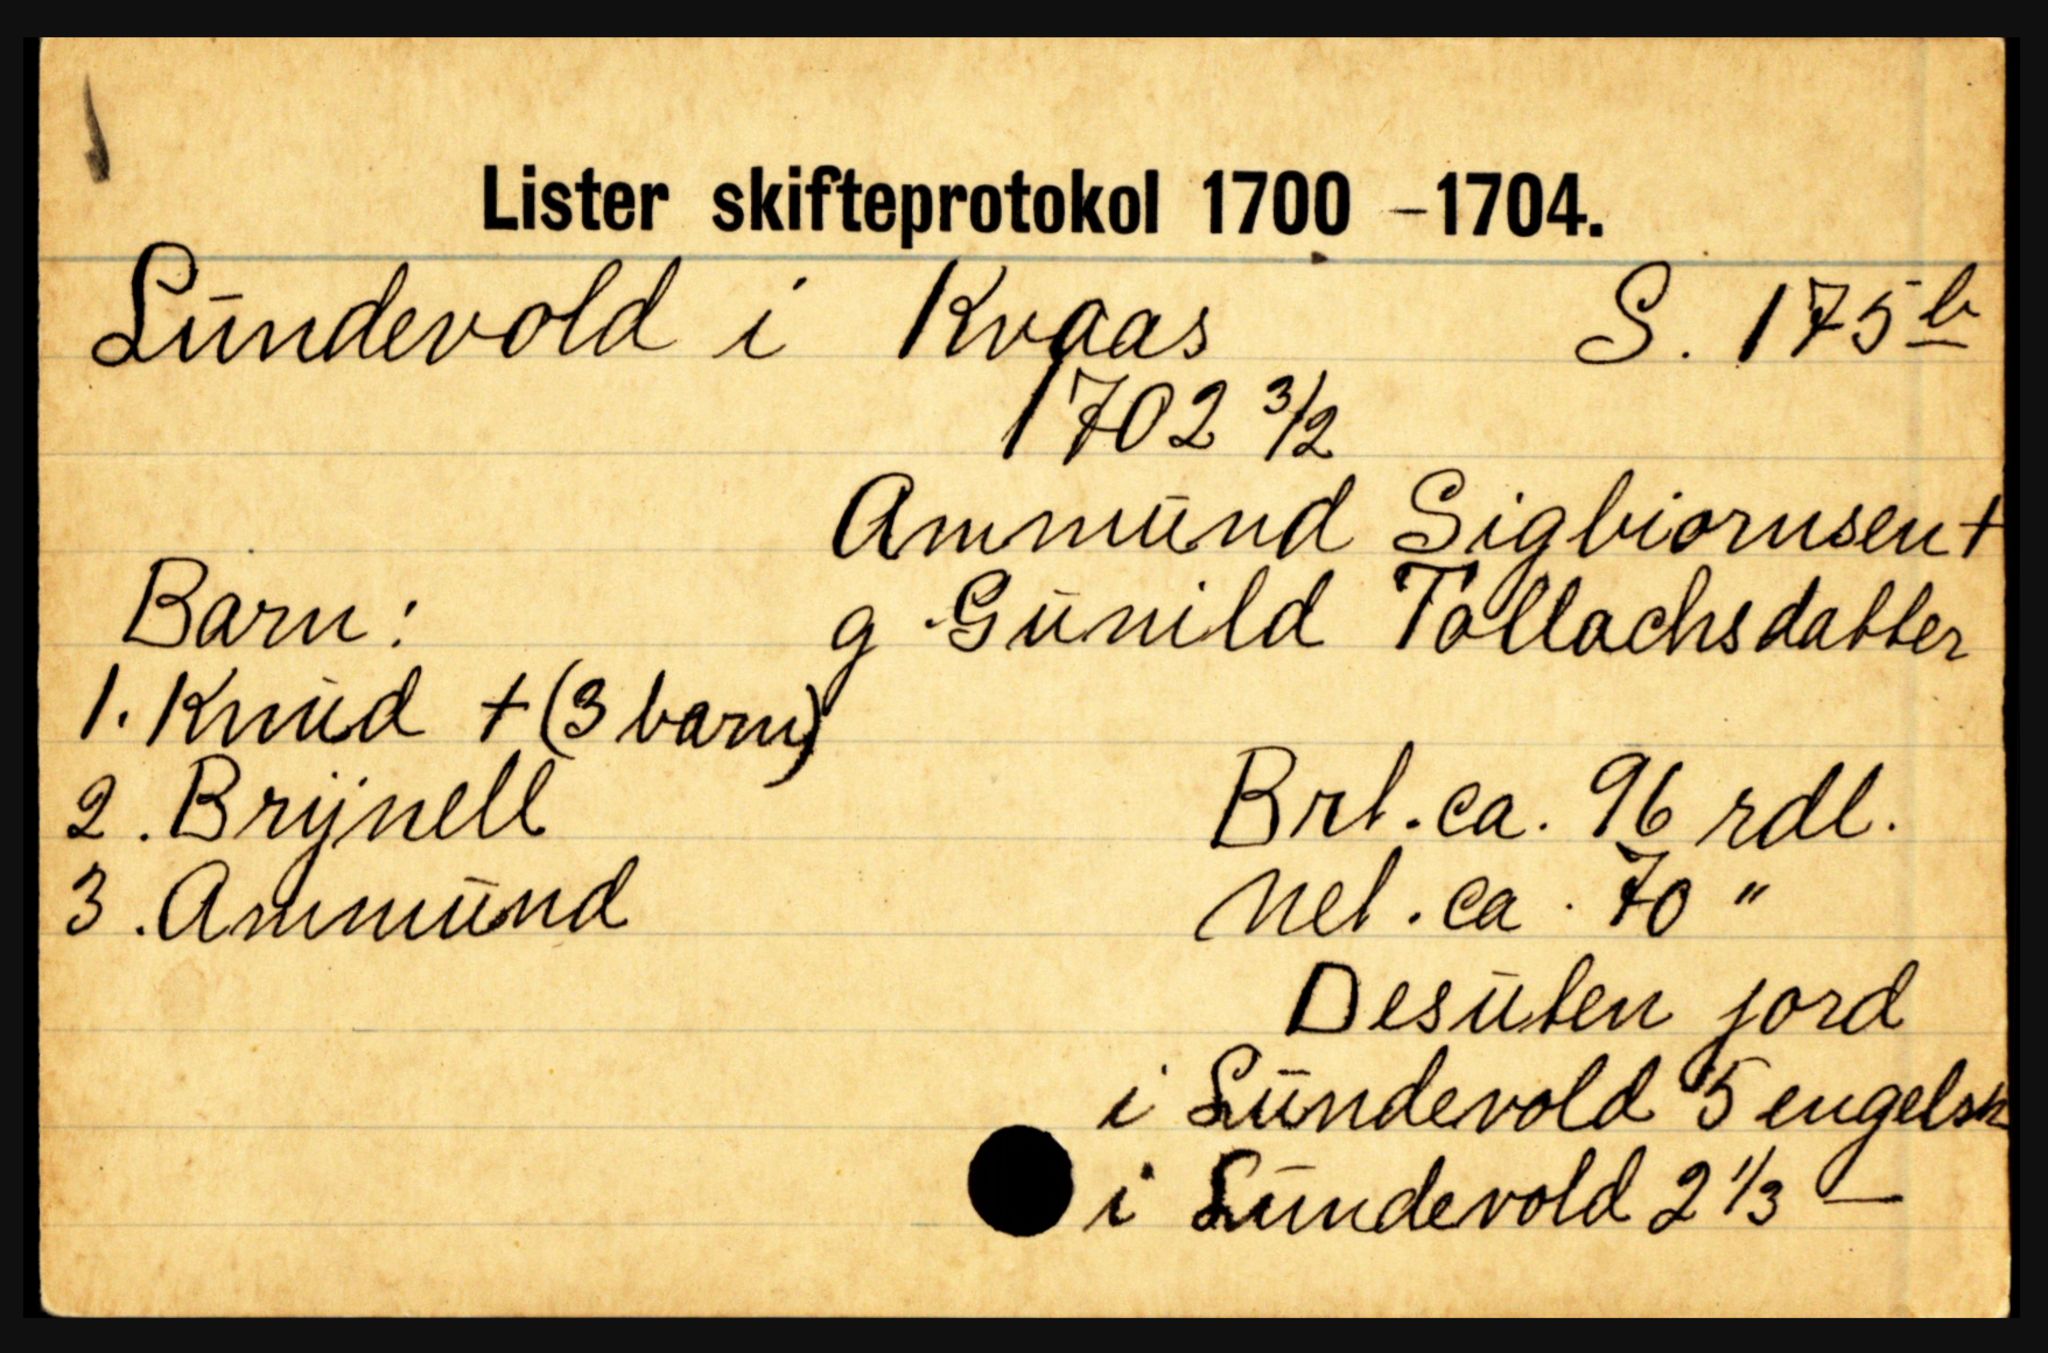 Lister skifteprotokol 1700 -1704.
Lundevold i Kvaas S. 175 b
1702 3/2
Ammund Sigbiornsen +
Barn: g. Gunild Tollachsdatter
1. Knud + (3 barn)
2. Brynell Brt. ca. 96 rdl.
3. Ammund Net. ca. 70 "
Desuten jord
i Lundevold 5 engelsk
i Lundevold 2 1/3 —